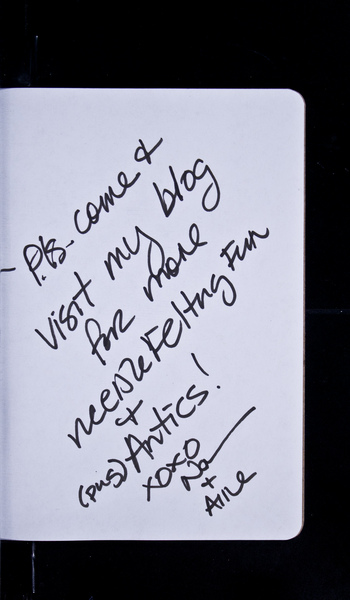 P.S. come &
visit my blog
for more
needle felting Fun
&
(pug) Antics!
XOXO
+